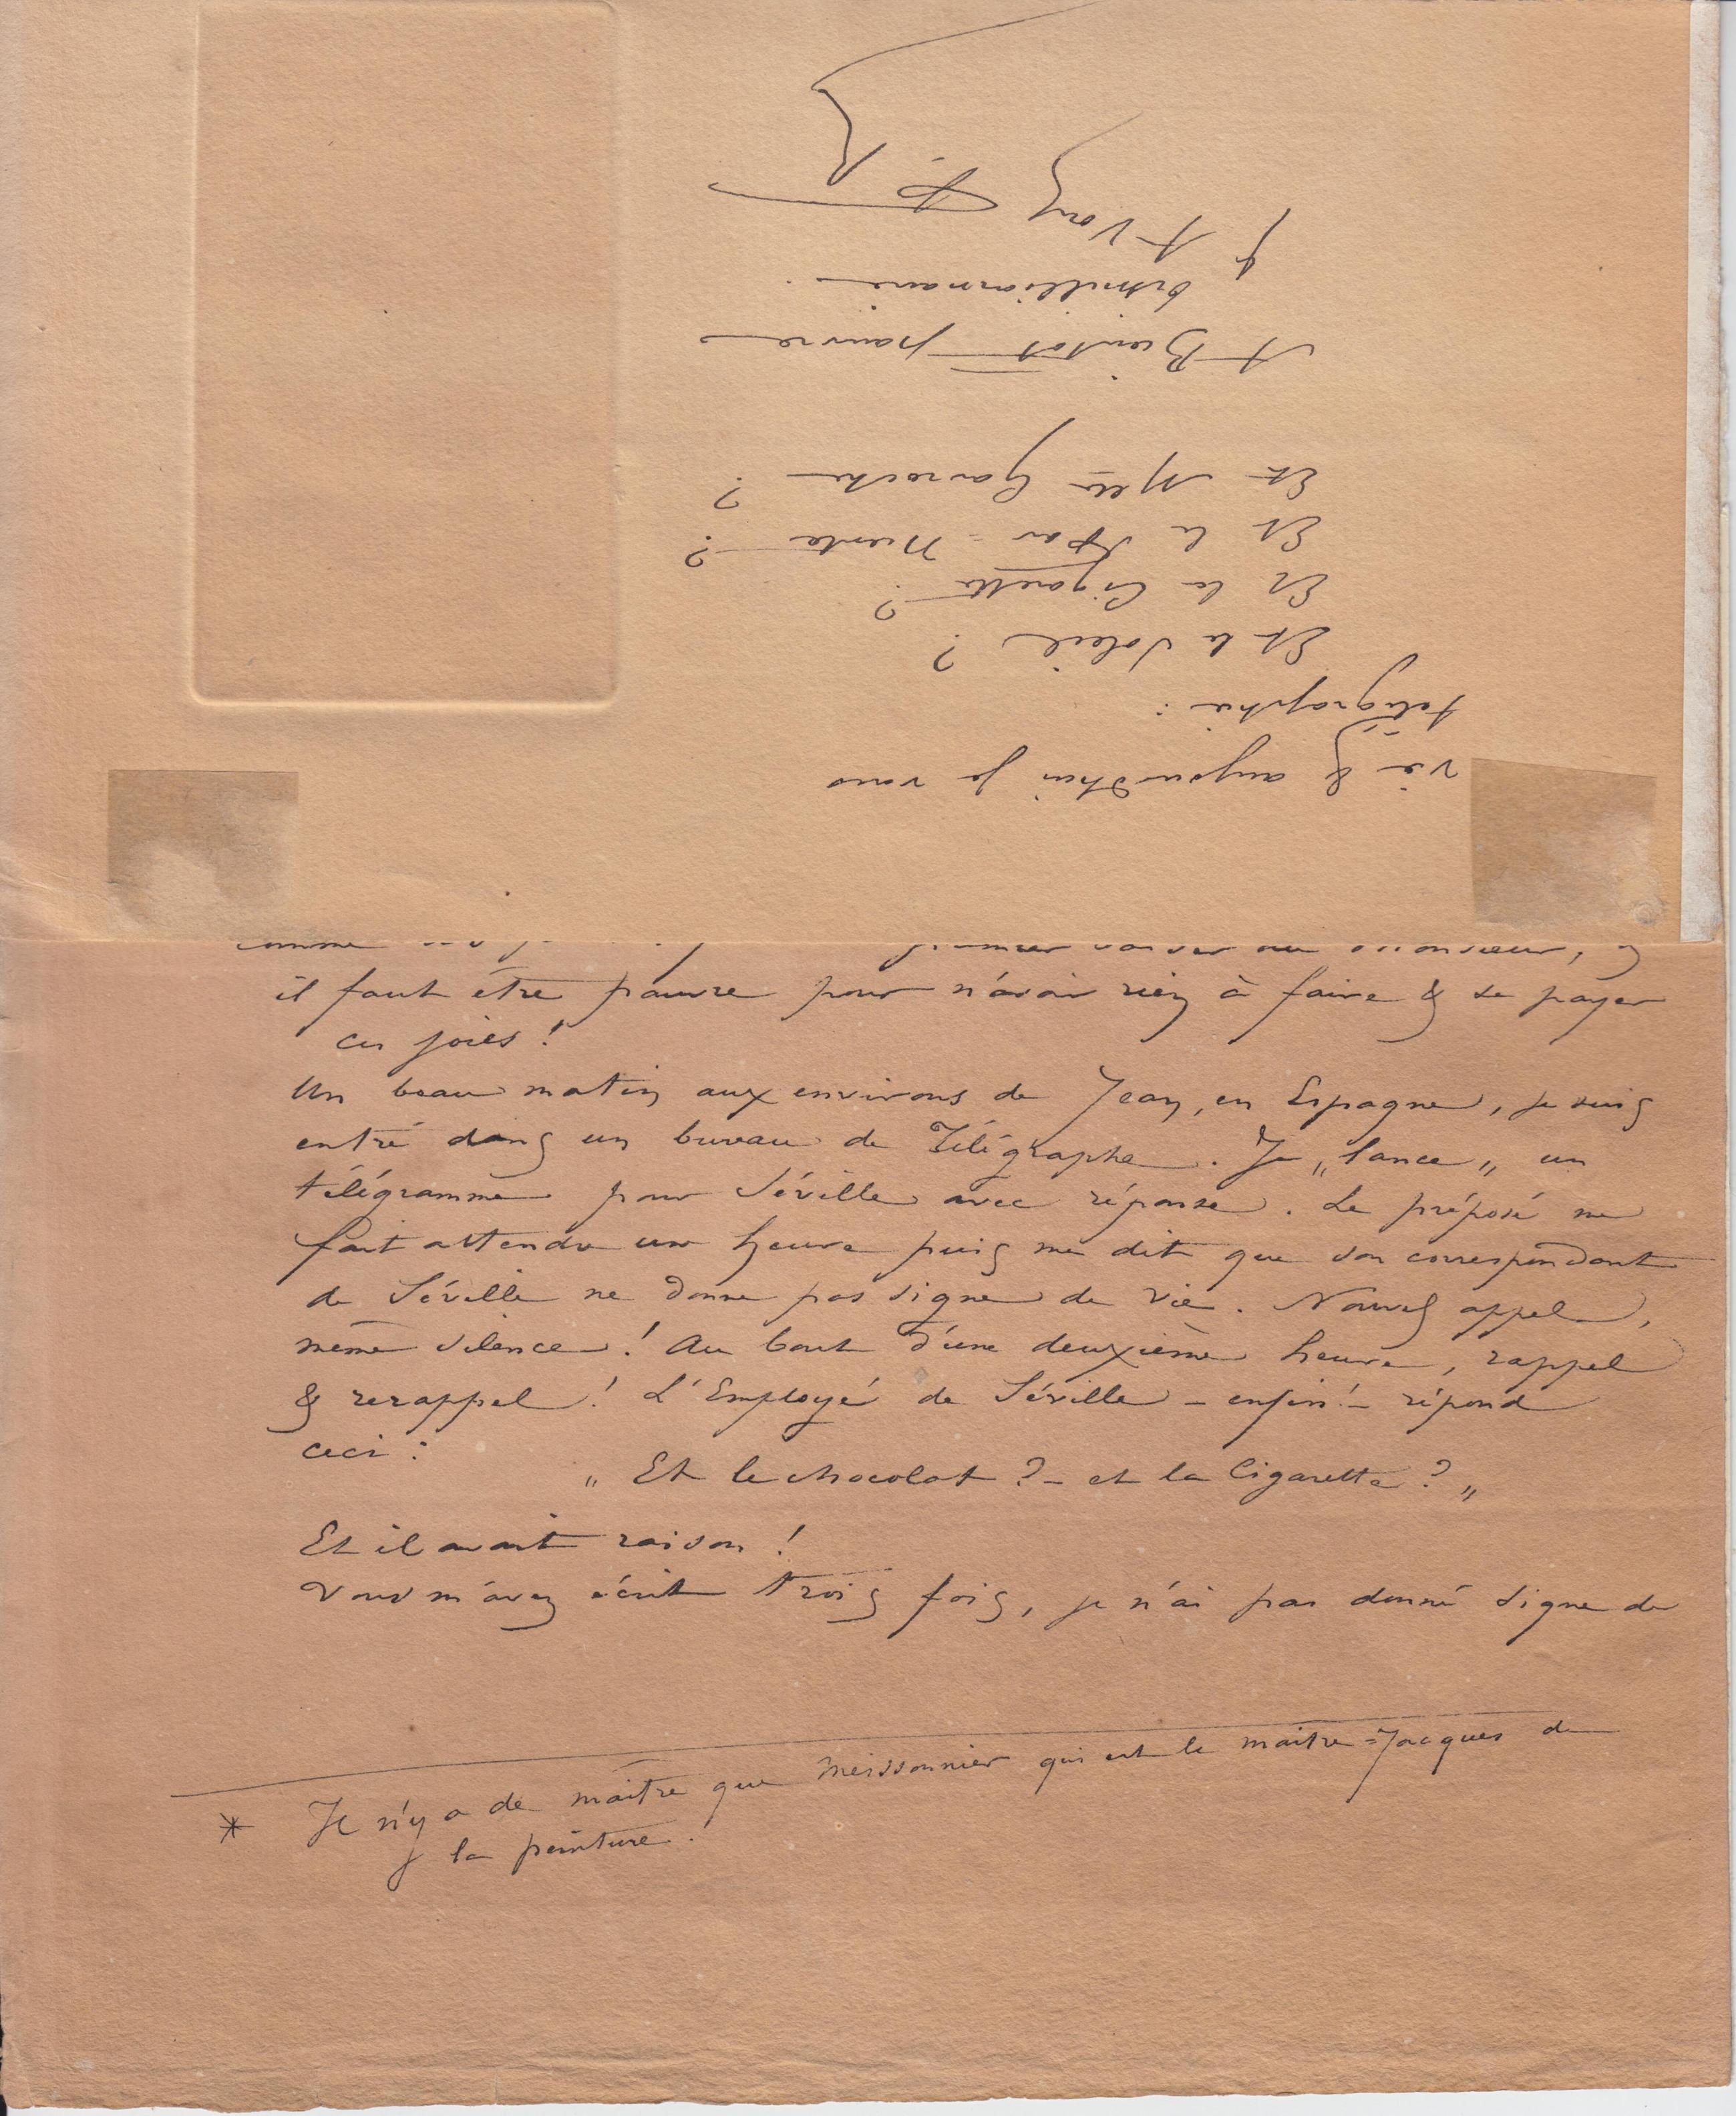 comme
il faut être pauvre pour n'avoir rien à faire & se payer
ces joies !
Un beau matin aux environs de Jean, en Espagne, je suis
entré dans un bureau de Télégraphe. Je „lance„ un
télégramme pour Séville avec réponse. Le préposé me
fait attendre une heure puis me dit que son correspondant
de Séville ne donne pas signe de vie. Nouvel appel,
même silence ! Au bout d'une deuxième heure, rappel
& rerappel ! L'Employé de Séville – enfin ! – répond
ceci :
„ Et le chocolat ? – et la Cigarette ? „
Et il avait raison !
Vous m'avez écrit trois fois, je n'ai pas donné signe de
* Il n'y a de maître que Meissonnier qui est le maitre=Jacques de
la peinture.
vie & aujourd'hui je vous
télégraphie :
Et le Soleil ?
Et la Cigarette ?
Et le Far=Niente ?
Et Mlle Gavroche ?
A Bientôt pauvre
bimillionnaire.
& A Vous